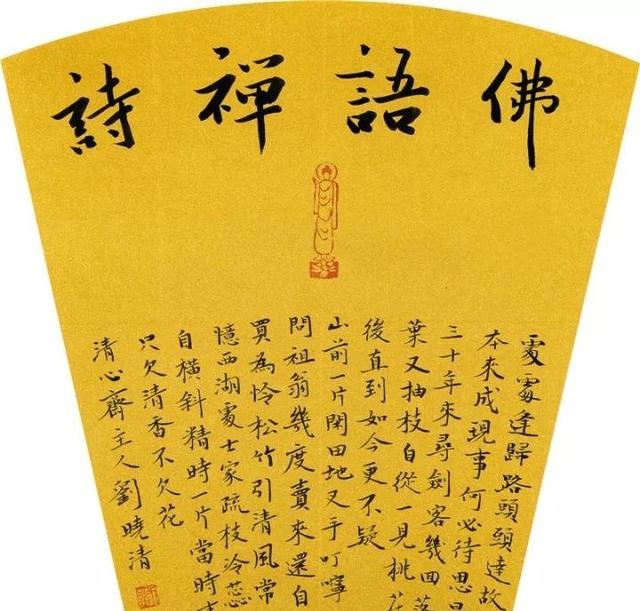 佛語禪詩
處處逢歸路頭頭達故
本來成現事何必待思
三十年來尋劍客幾回落
葉又抽枝自從一見桃花
後直到如今更不疑
山前一片閑田地叉手叮嚀
問祖翁幾度賣來還自
買為怜松竹引清風常
憶西湖處士家疏枝冷蕊
自橫斜精時一片當時
只欠清香不欠花
清心齋主人劉曉清